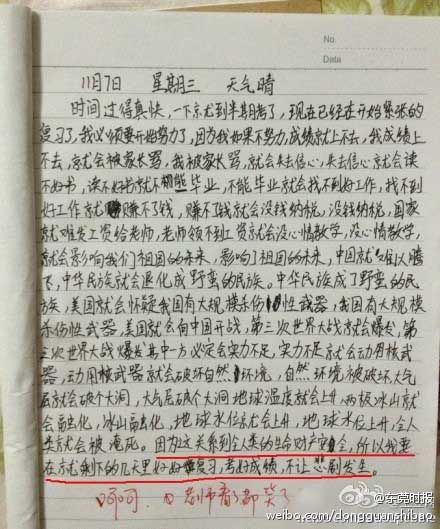 No.
Data
11月7日 星期三 天气晴
时间过得真快，一下就到半期考了，现在已经在开始紧张的
复习了，我必须要开始努力了，因为我如果不努力，成绩就上不去，我成绩上
不去，就会被家长骂，我被家长骂，就会失去信心，失去信心就会读
不好书，读不好书就不能毕业，不能毕业就会找不到好工作，找不到
好工作就赚不了钱，赚不了钱就会没钱纳税，没钱纳税，国家
就难发工资给老师，老师领不到工资就会没心情教学，没心情教学，
就会影响我们祖国的未来，影响了祖国的未来，中国就难以腾
飞，中华民族就会退化成野蛮的民族。中华民族成了野蛮的民
族，美国就会怀疑我国有大规模杀伤性武器，我国有大规模
杀伤性武器，美国就会向中国开战，第三次世界大战就会爆发，第
三次世界大战爆发其中一方必定会实力不足，实力不足就会动用核武
器，动用核武器就会破坏自然环境，自然环境被破坏，大气
层就会破个大洞，大气层破个大洞地球温度就会上升，两极冰山就
会融化，冰山融化，地球水位就会上升，地球水位上升，全人
类就会被淹死。因为这关系到全人类的生命财产安全，所以我要
在这剩下的几天里好好复习，考好成绩，不让悲剧发生。
呵呵，看了都笑了
@东莞时报
weibo.com/dongguanshibao